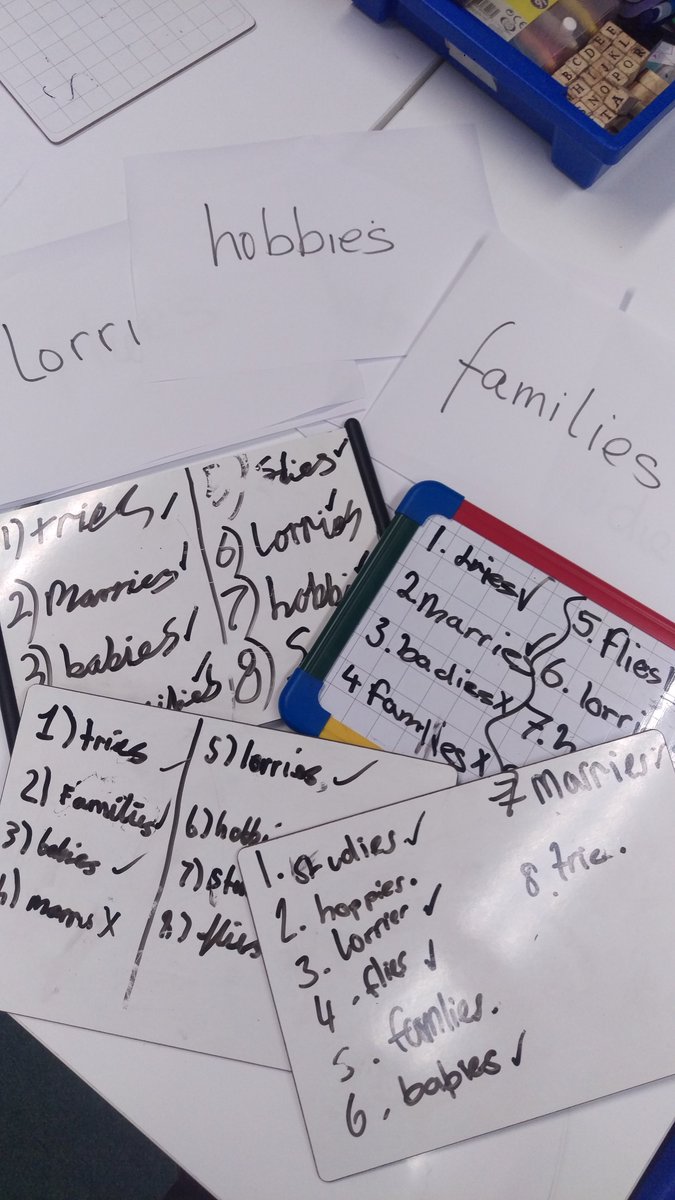 B C D E E
H I J K L
N O P O R
T A
hobbies
Lorri
families
1) tries ✓
2) Marries ✓
3) babies ✓
5) flies ✓
6) Lorries
7) hobbi
8) S
1. tries ✓
2. Marries ✓
3. badies X
4 families X
5. flies
6. lorri
7. h
1) tries ✓
2) Families ✓
3) babies ✓
5) lorries ✓
6) hobbi
7) stu
8) flies
1. studies ✓
2. hoppies.
3. lorries ✓
4. flies ✓
5. families.
6. babies ✓
7 Marries
8. trie.